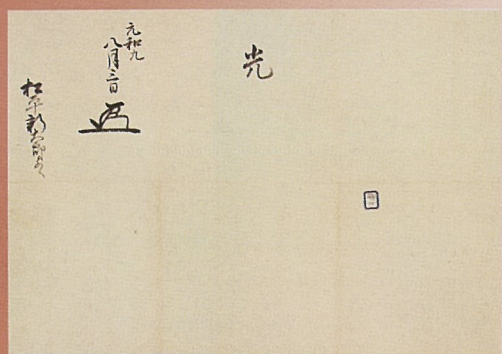 光
元和九
八月三日
松平新太郎とのへ